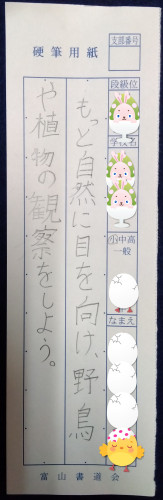 硬筆用紙
支部番号
段級位
小中高
一般
なまえ
もっと自然に目を向け、野鳥
や植物の観察をしよう。
富山書道会